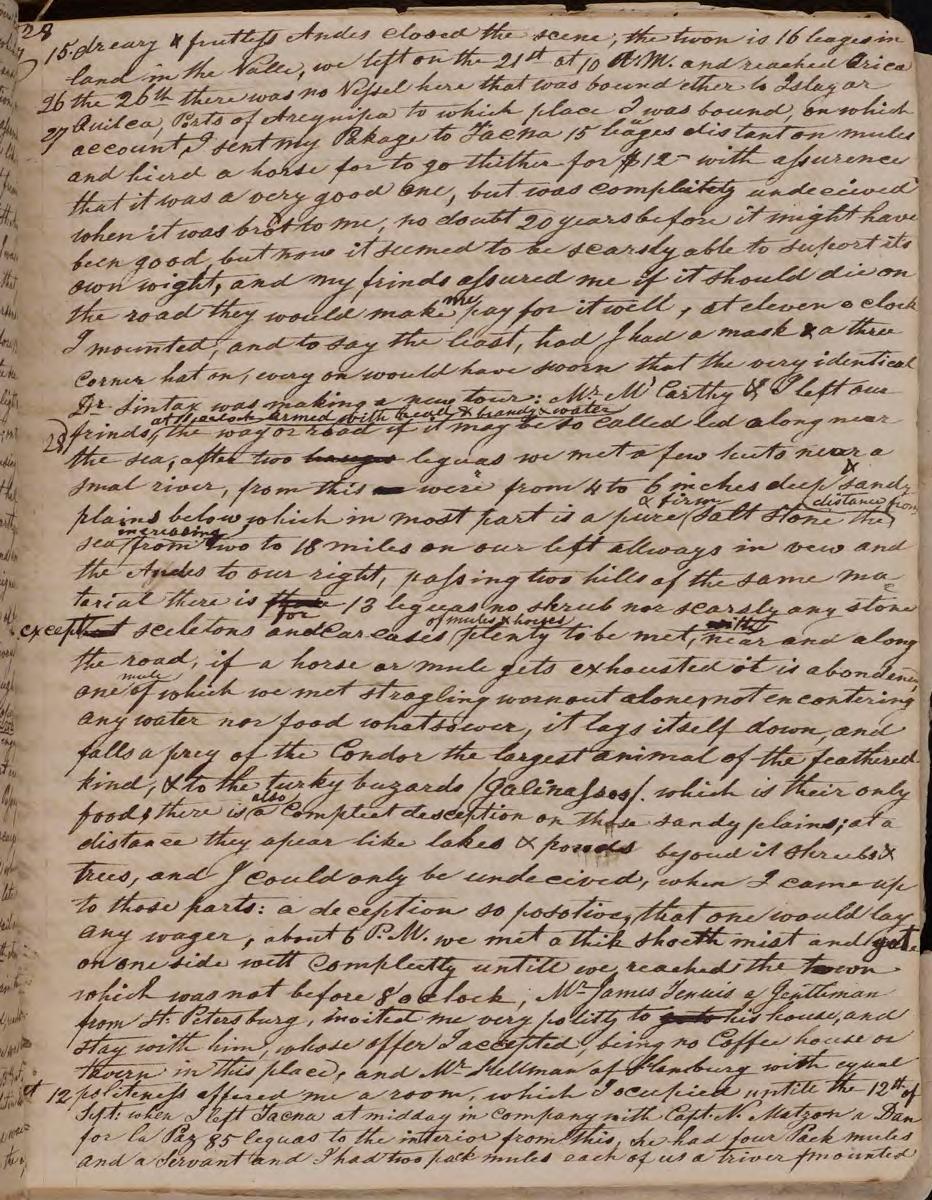 28
15. dreary & fruitless Andes closed the scene; the twon is 16 leages in
land in the Valle, we left on the 21st at 10 A.M. and reached Arica
26 the 26th there was no Vessel here that was bound ether to Islay or
27 Quilca, Ports of Arequipa to which place I was bound, on which
account, I sent my Pakage to Tacna 15 leages distant on mules
and hierd a horse for to go thither for $12- with assurence
that it was a very good one, but was completely undeceived
when it was brot to me, no doubt 20 years before it might have
been good, but now it seemed to be scarsly able to suport its
own wight, and my frinds assured me if it should die on
the road they would make me pay for it well, at eleven o clock
I mounted, and to say the least, had I had a mask & a three
corner hat on, every on would have sworn that the very identical
Dr. Sintax was making a new tour: Mr. Mc Carthy & I left our
at 11 oclock armed with bread & brandy & water
28) frinds, the way or road if it may be so called led along near
the sea, after two leguas we met a few huts near a
smal river, from this were from 4 to 6 inches deep sandy
plains below which in most part is a pure & firm salt stone the distance from
sea increasing from two to 18 miles on our left allways in vew and
the Andes to our right, passing two hills of the same ma-
terial there is for 13 leguas no shrub nor scarsly any stone
except sceletons and carcases of mules & horses plenty to be met, near and along
the road, if a horse or mule gets exhausted it is abondened
one mule of which we met stragling wornout alone, not encontering
any water nor food whatsoever, it lays itself down, and
falls a prey of the Condor the largest animal of the feathered
kind, & to the turky buzards /Galinassos/. which is their only
food; there is also a compleet desception on those sandy plains; at a
distance they apear like lakes & ponds beyond it shrubs &
trees, and I could only be undecived, when I came up
to those parts: a deception so posotive, that one would lay
any wager, about 6 P.M. we met a thik mist and got
on one side wett compleetly untill we reached the town
which was not before 8 oclock; Mr. James a Gentleman
from St. Petersburg, invited me very politly to his house, and
stay with him, whose offer I accepted, being no Coffee house or
tavern in this place, and Mr. Hellman of Hamburg with equal
12 politeness offered me a room, which I occupied untile the 12th of
Sept. when I left Tacna at midday in company with Capt. N. Matzon a Dan
for la Paz 85 leguas to the interior from this, he had four Pack mules
and a Servant and I had two pack mules each of us a triver mounted